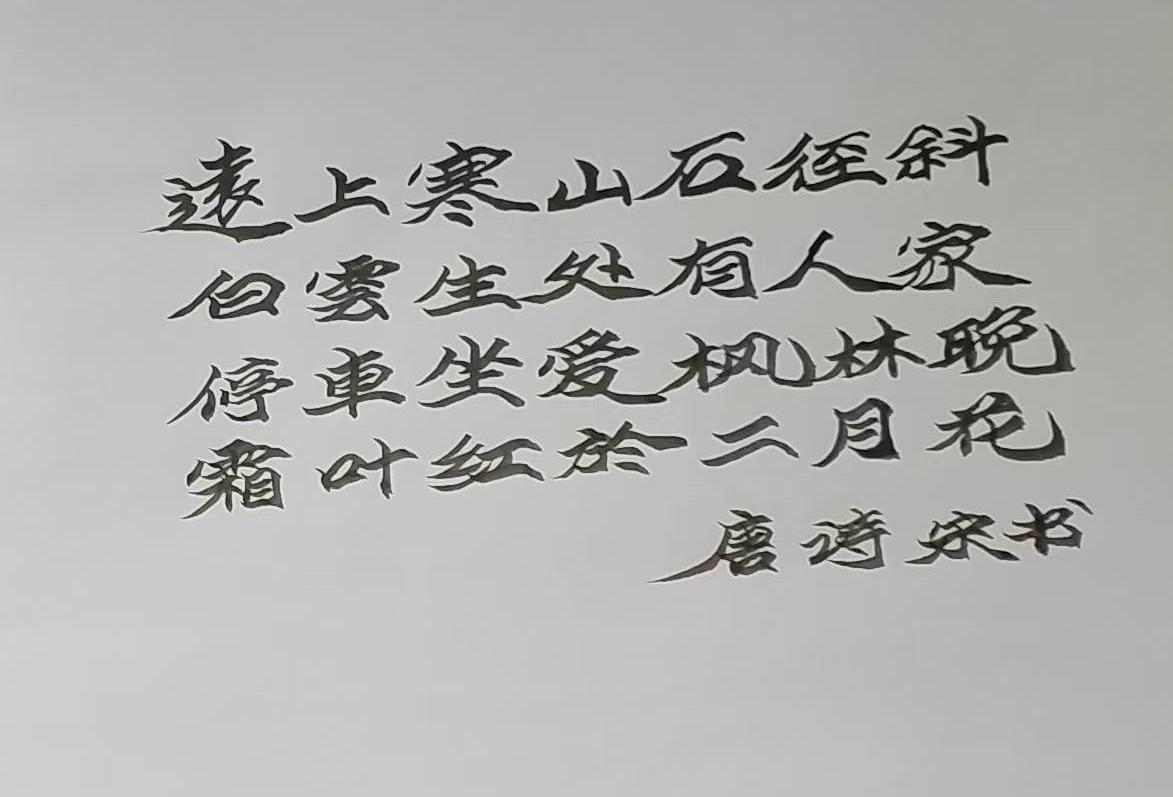 遠上寒山石径斜
白雲生处有人家
停車坐爱枫林晚
霜叶红於二月花
唐诗宋书